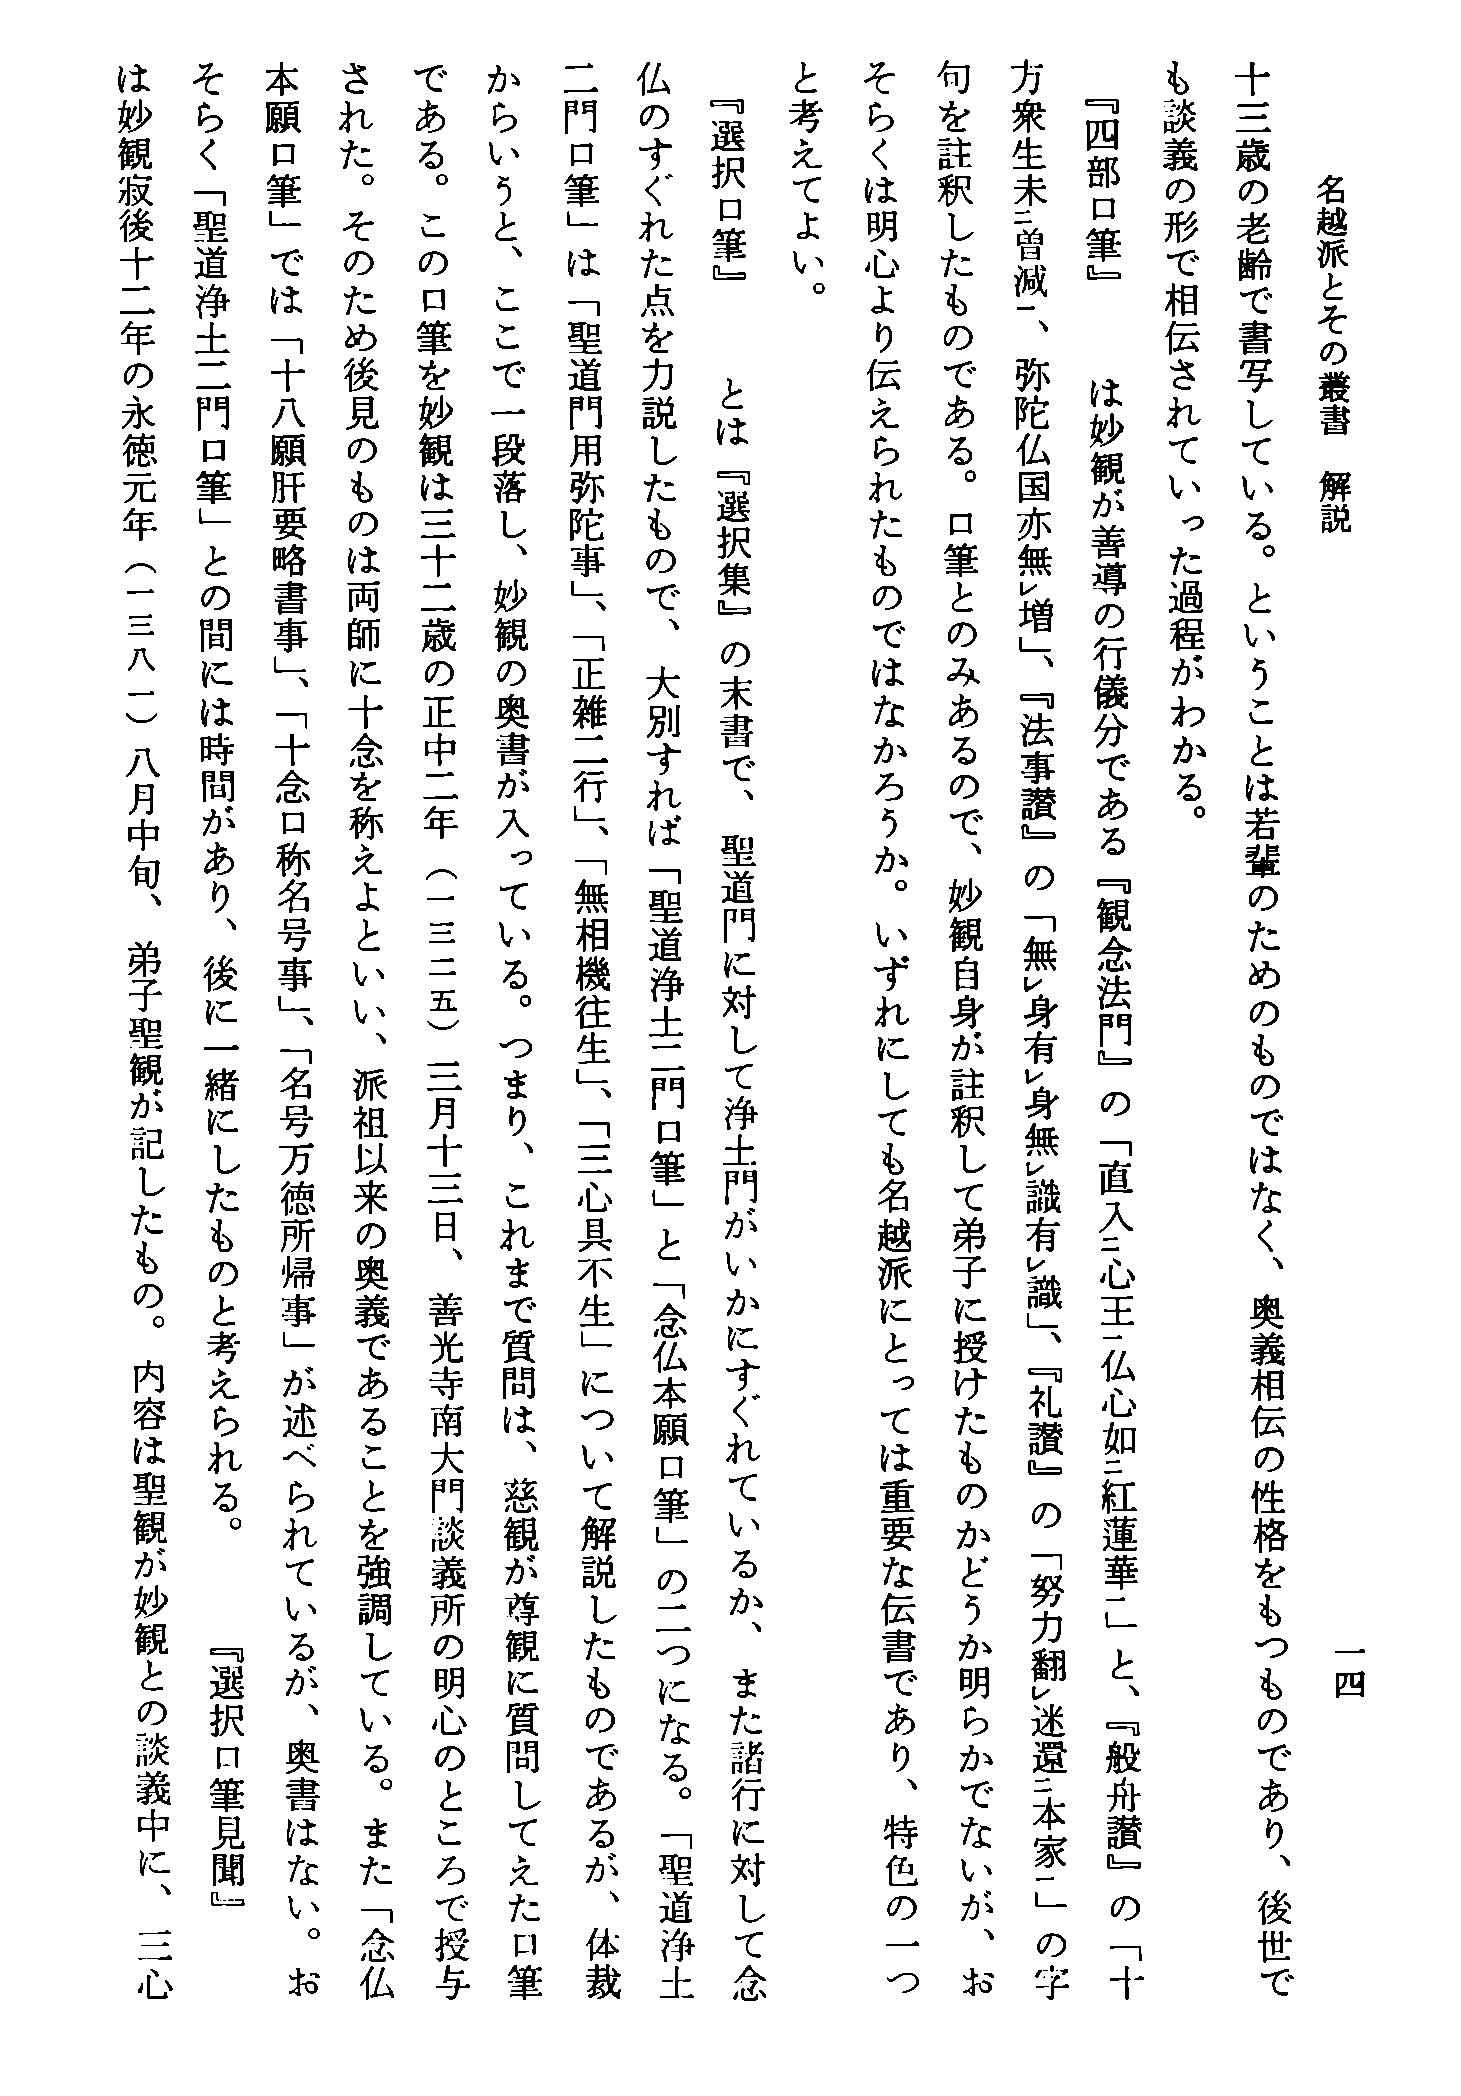 名越派とその叢書　解説
一四
十三歳の老齢で書写している。ということは若輩のためのものではなく、奥義相伝の性格をもつものであり、後世で
も談義の形で相伝されていった過程がわかる。
『四部口筆』　　は妙観が善導の行儀分である『観念法門』の「直入㆓心王㆒仏心如㆓紅蓮華㆒」と、『般舟讃』の「十
方衆生未㆓曽減㆒、弥陀仏国亦無㆑増」、『法事讃』の「無㆑身有㆑身無㆑識有㆑識」、『礼讃』の「努力翻㆑迷還㆓本家㆒」の字
句を註釈したものである。口筆とのみあるので、妙観自身が註釈して弟子に授けたものかどうか明らかでないが、お
そらくは明心より伝えられたものではなかろうか。いずれにしても名越派にとっては重要な伝書であり、特色の一つ
と考えてよい。
『選択口筆』　　とは『選択集』の末書で、聖道門に対して浄土門がいかにすぐれているか、また諸行に対して念
仏のすぐれた点を力説したもので、大別すれば「聖道浄土二門口筆」と「念仏本願口筆」の二つになる。「聖道浄土
二門口筆」は「聖道門用弥陀事」、「正雑二行」、「無相機往生」、「三心具不生」について解説したものであるが、体裁
からいうと、ここで一段落し、妙観の奥書が入っている。つまり、これまで質問は、慈観が尊観に質問してえた口筆
である。この口筆を妙観は三十二歳の正中二年（一三二五）三月十三日、善光寺南大門談義所の明心のところで授与
された。そのため後見のものは両師に十念を称えよといい、派祖以来の奥義であることを強調している。また「念仏
本願口筆」では「十八願肝要略書事」、「十念口称名号事」、「名号万徳所帰事」が述べられているが、奥書はない。お
そらく「聖道浄土二門口筆」との間には時間があり、後に一緒にしたものと考えられる。　　『選択口筆見聞』
は妙観寂後十二年の永徳元年（一三八一）八月中旬、弟子聖観が記したもの。内容は聖観が妙観との談義中に、三心